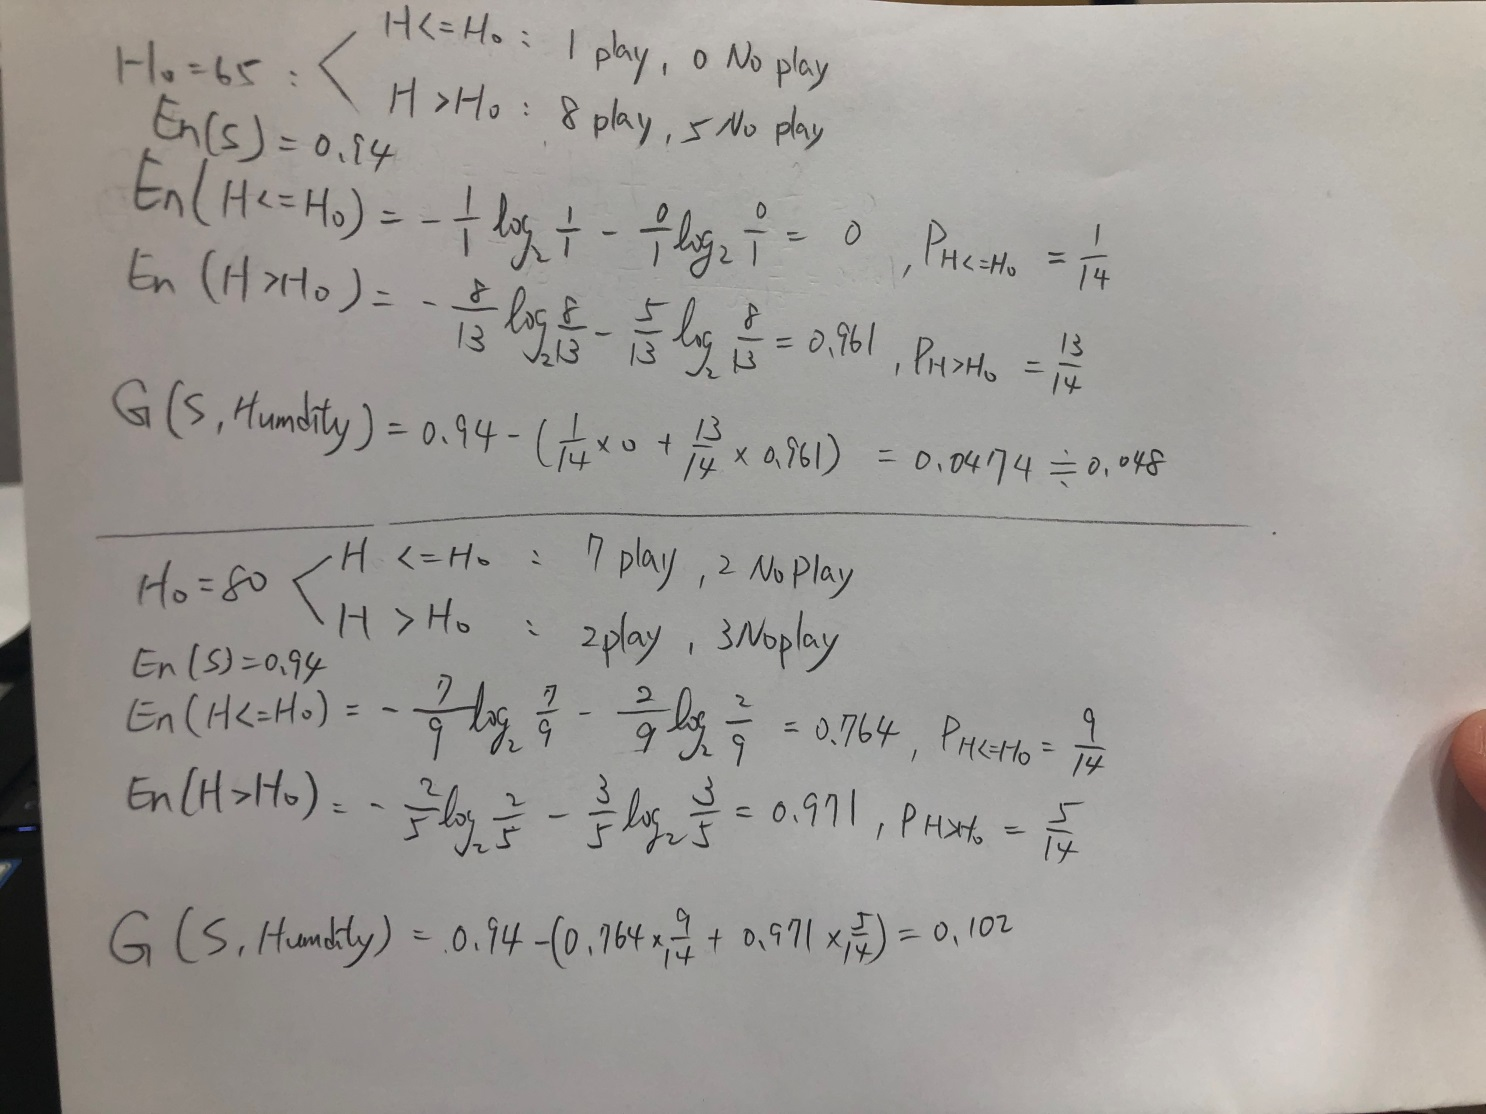 H₀=65 : H<=H₀ : 1 play, 0 No play
H>H₀ : 8 play, 5 No play
En(S) = 0.94
En(H<=H₀) = - 1/1 log₂ 1/1 - 0/1 log₂ 0/1 = 0 , P_H<=H₀ = 1/14
En (H>H₀) = - 8/13 log₂ 8/13 - 5/13 log₂ 8/13 = 0.961 , P_H>H₀ = 13/14
G(S, Humdity) = 0.94 - (1/14 × 0 + 13/14 × 0.961) = 0.0474 ≑ 0.048
H₀=80 H <=H₀ : 7 play , 2 No Play
H > H₀ : 2 play , 3 No play
En (S)=0.94
En(H<=H₀) = - 7/9 log₂ 7/9 - 2/9 log₂ 2/9 = 0.764 , P_H<=H₀ = 9/14
En(H>H₀) = - 2/5 log₂ 2/5 - 3/5 log₂ 3/5 = 0.971 , P_H>H₀ = 5/14
G (S, Humdity) = 0.94 -(0.764 × 9/14 + 0.971 × 5/14) = 0.102